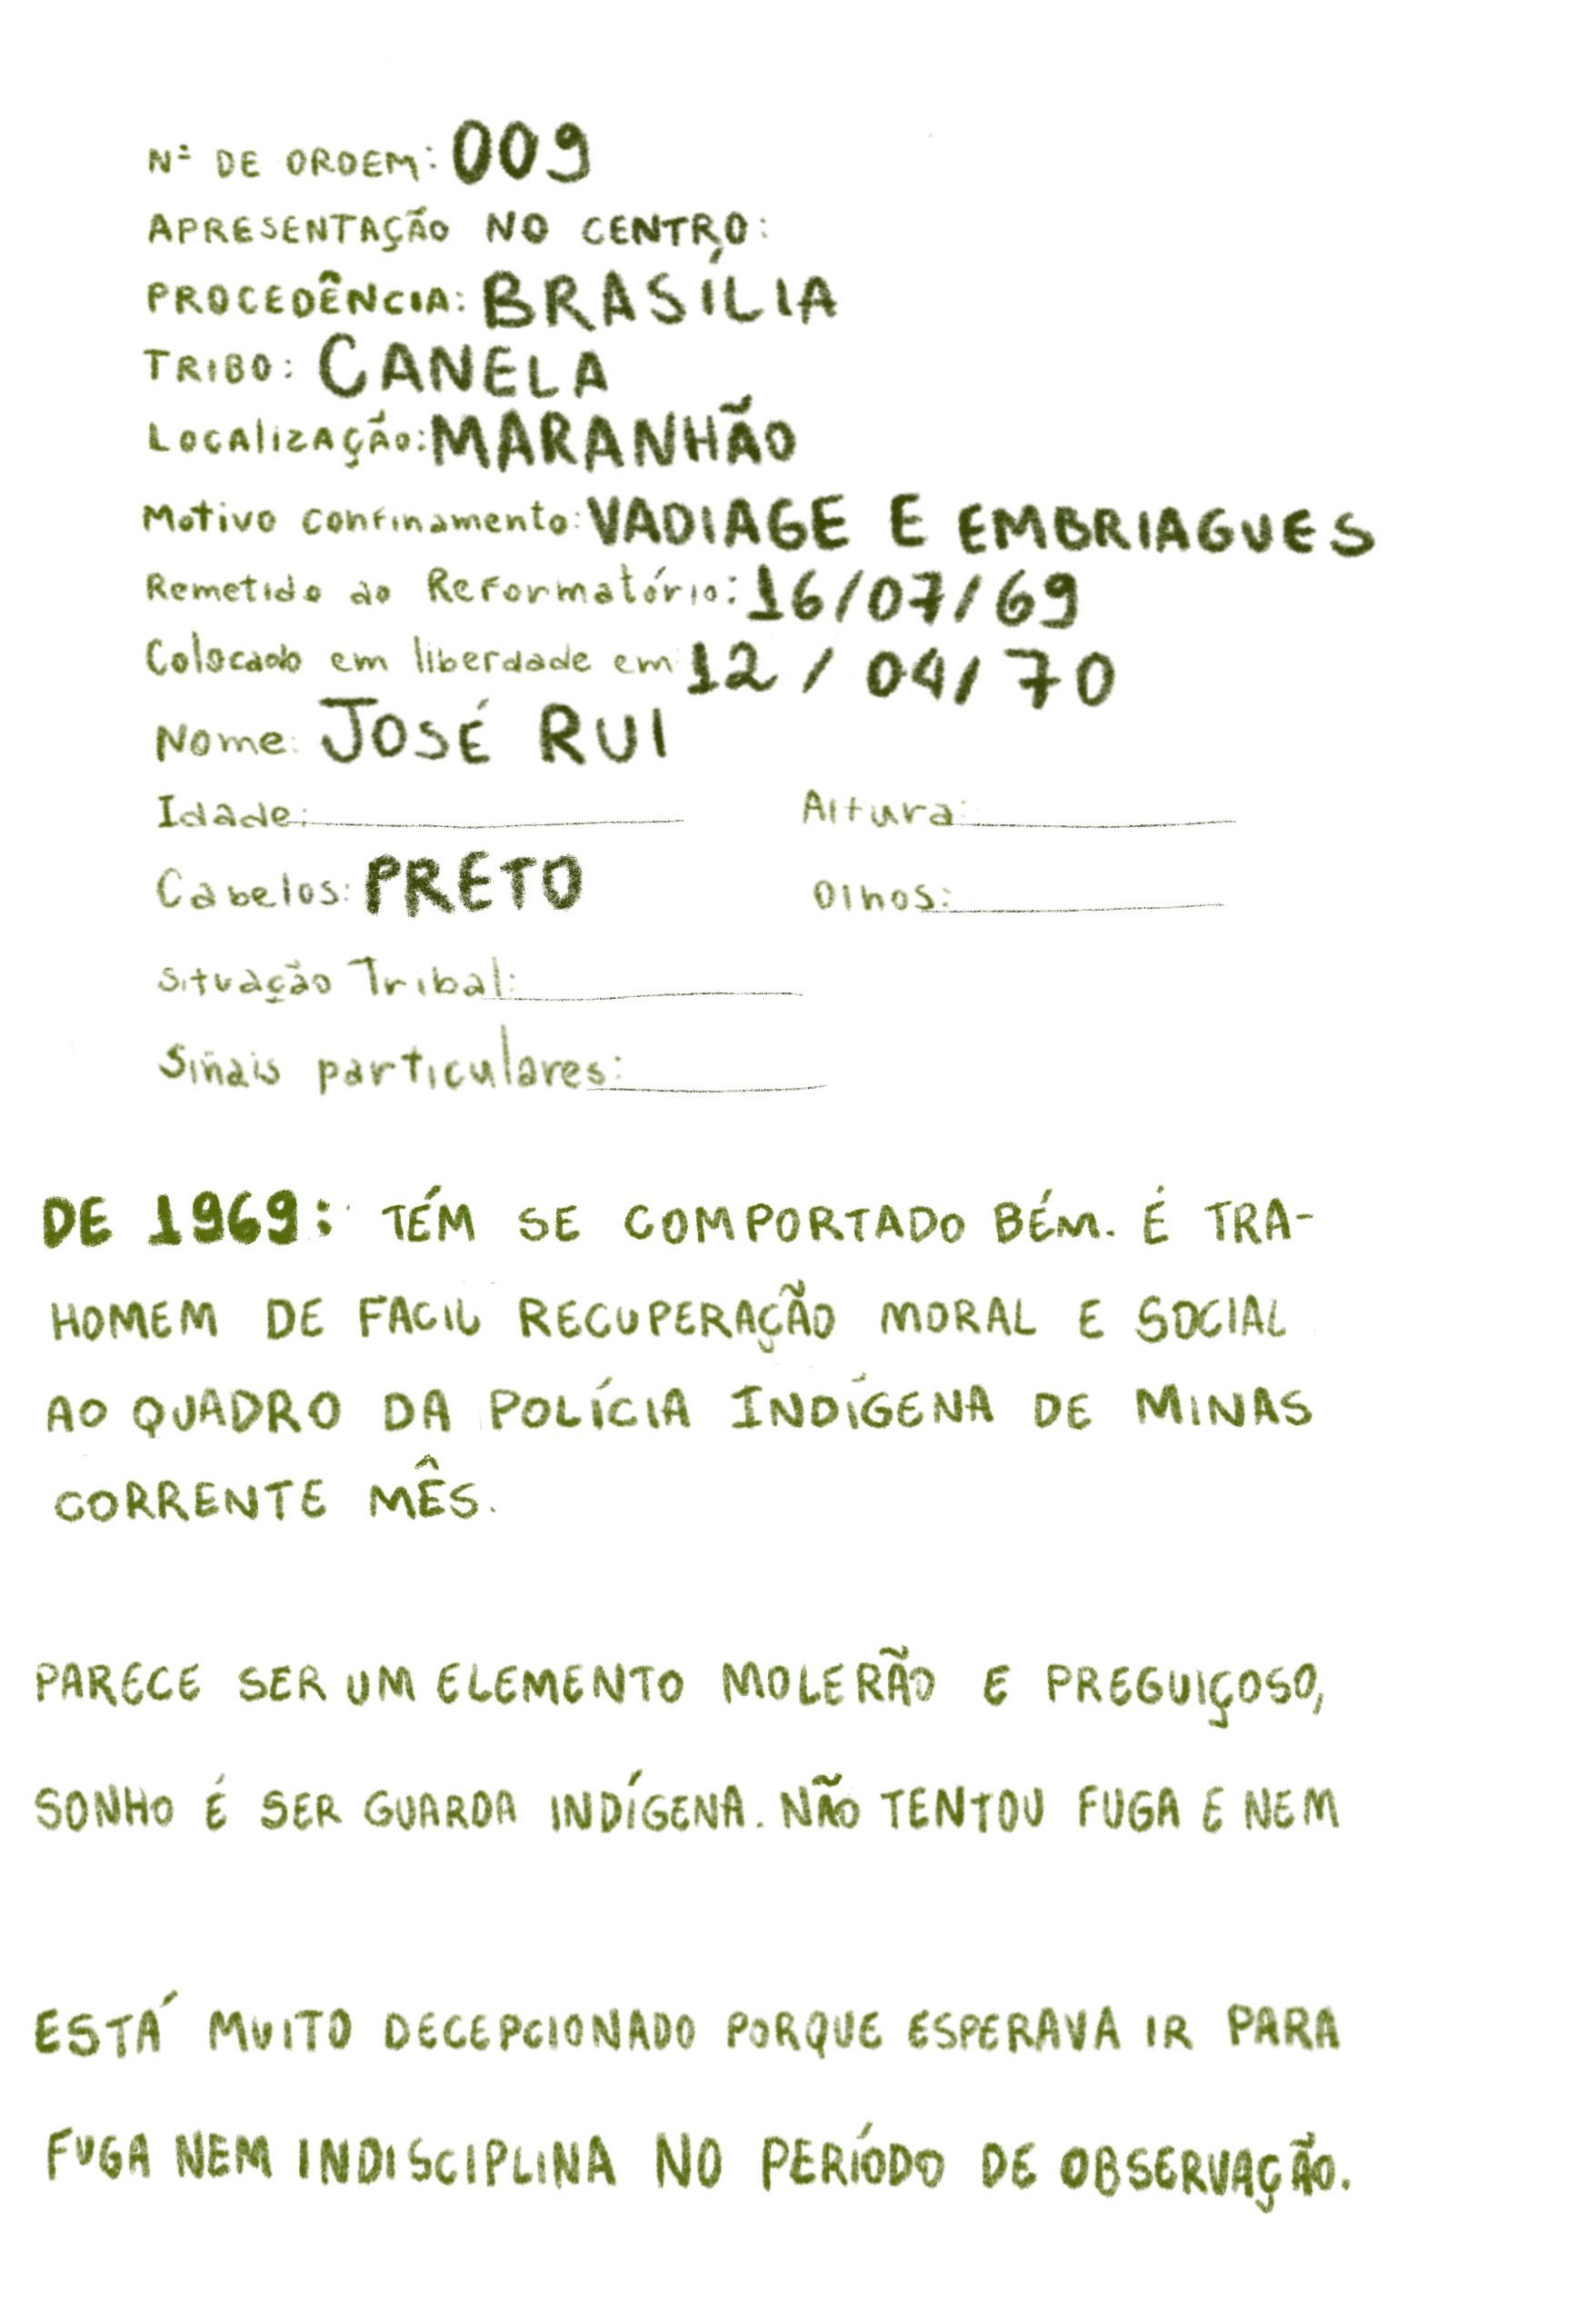 Nº DE ORDEM: 009
APRESENTAÇÃO NO CENTRO:
PROCEDÊNCIA: BRASÍLIA
TRIBO: CANELA
LOCALIZAÇÃO: MARANHÃO
Motivo confinamento: VADIAGE E EMBRIAGUES
Remetido ao Reformatório: 16/07/69
Colocado em liberdade em 12/04/70
Nome: JOSÉ RUI
Idade: Altura:
Cabelos: PRETO Olhos:
Situação Tribal:
Sinais particulares:
DE 1969: TÉM SE COMPORTADO BÉM. É TRA-
HOMEM DE FACIL RECUPERAÇÃO MORAL E SOCIAL
AO QUADRO DA POLÍCIA INDÍGENA DE MINAS
CORRENTE MÊS.
PARECE SER UM ELEMENTO MOLERÃO E PREGUIÇOSO,
SONHO É SER GUARDA INDÍGENA. NÃO TENTOU FUGA E NEM
ESTÁ MUITO DECEPCIONADO PORQUE ESPERAVA IR PARA
FUGA NEM INDISCIPLINA NO PERÍODO DE OBSERVAÇÃO.